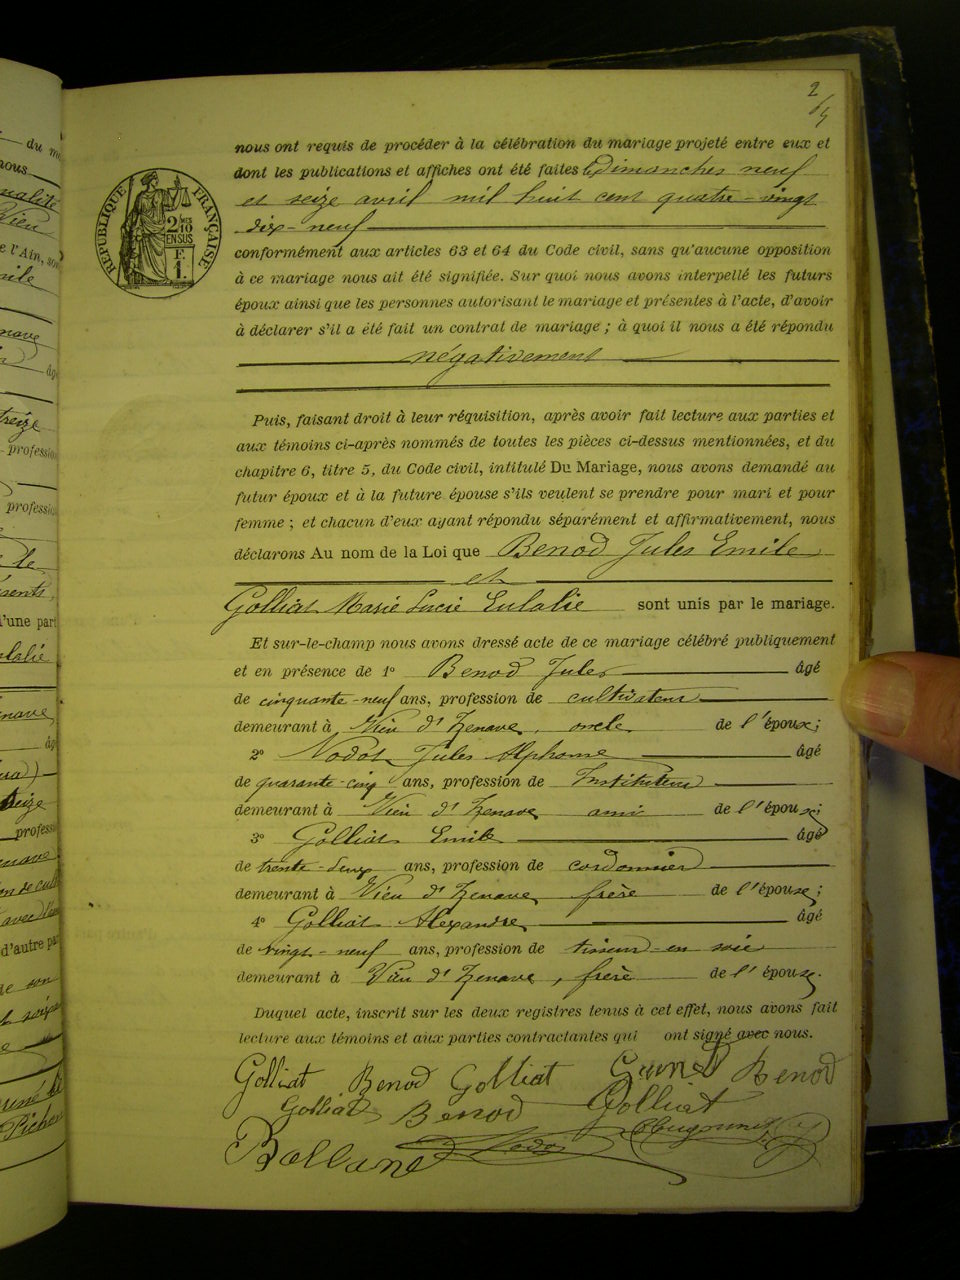 2
nous ont requis de procéder à la célébration du mariage projeté entre eux et
dont les publications et affiches ont été faites Dimanches neuf
et seize avril mil huit cent quatre-vingt
dix-neuf
RÉPUBLIQUE FRANÇAISE
2 MES
10
EN SUS
F.
1.
conformément aux articles 63 et 64 du Code civil, sans qu'aucune opposition
à ce mariage nous ait été signifiée. Sur quoi nous avons interpellé les futurs
époux ainsi que les personnes autorisant le mariage et présentes à l'acte, d'avoir
à déclarer s'il a été fait un contrat de mariage ; à quoi il nous a été répondu
négativement
Puis, faisant droit à leur réquisition, après avoir fait lecture aux parties et
aux témoins ci-après nommés de toutes les pièces ci-dessus mentionnées, et du
chapitre 6, titre 5, du Code civil, intitulé Du Mariage, nous avons demandé au
futur époux et à la future épouse s'ils veulent se prendre pour mari et pour
femme ; et chacun d'eux ayant répondu séparément et affirmativement, nous
déclarons Au nom de la Loi que Benod Jules Emile
et
Golliat Marie Lucie Eulalie sont unis par le mariage.
Et sur-le-champ nous avons dressé acte de ce mariage célébré publiquement
et en présence de 1° Benod Jules âgé
de cinquante-neuf ans, profession de cultivateur
demeurant à Vieu d'Izenave, oncle de l'époux;
2° Nodot Jules Alphonse âgé
de quarante-cinq ans, profession de Instituteur
demeurant à Vieu d'Izenave ami de l'époux;
3° Golliat Emile âgé
de trente-deux ans, profession de cordonnier
demeurant à Vieu d'Izenave frère de l'épouse;
4° Golliat Alexandre âgé
de vingt-neuf ans, profession de tisseur en soie
demeurant à Vieu d'Izenave, frère de l'épouse.
Duquel acte, inscrit sur les deux registres tenus à cet effet, nous avons fait
lecture aux témoins et aux parties contractantes qui ont signé avec nous.
Golliat Benod Golliat Benod
Golliat Benod Golliat